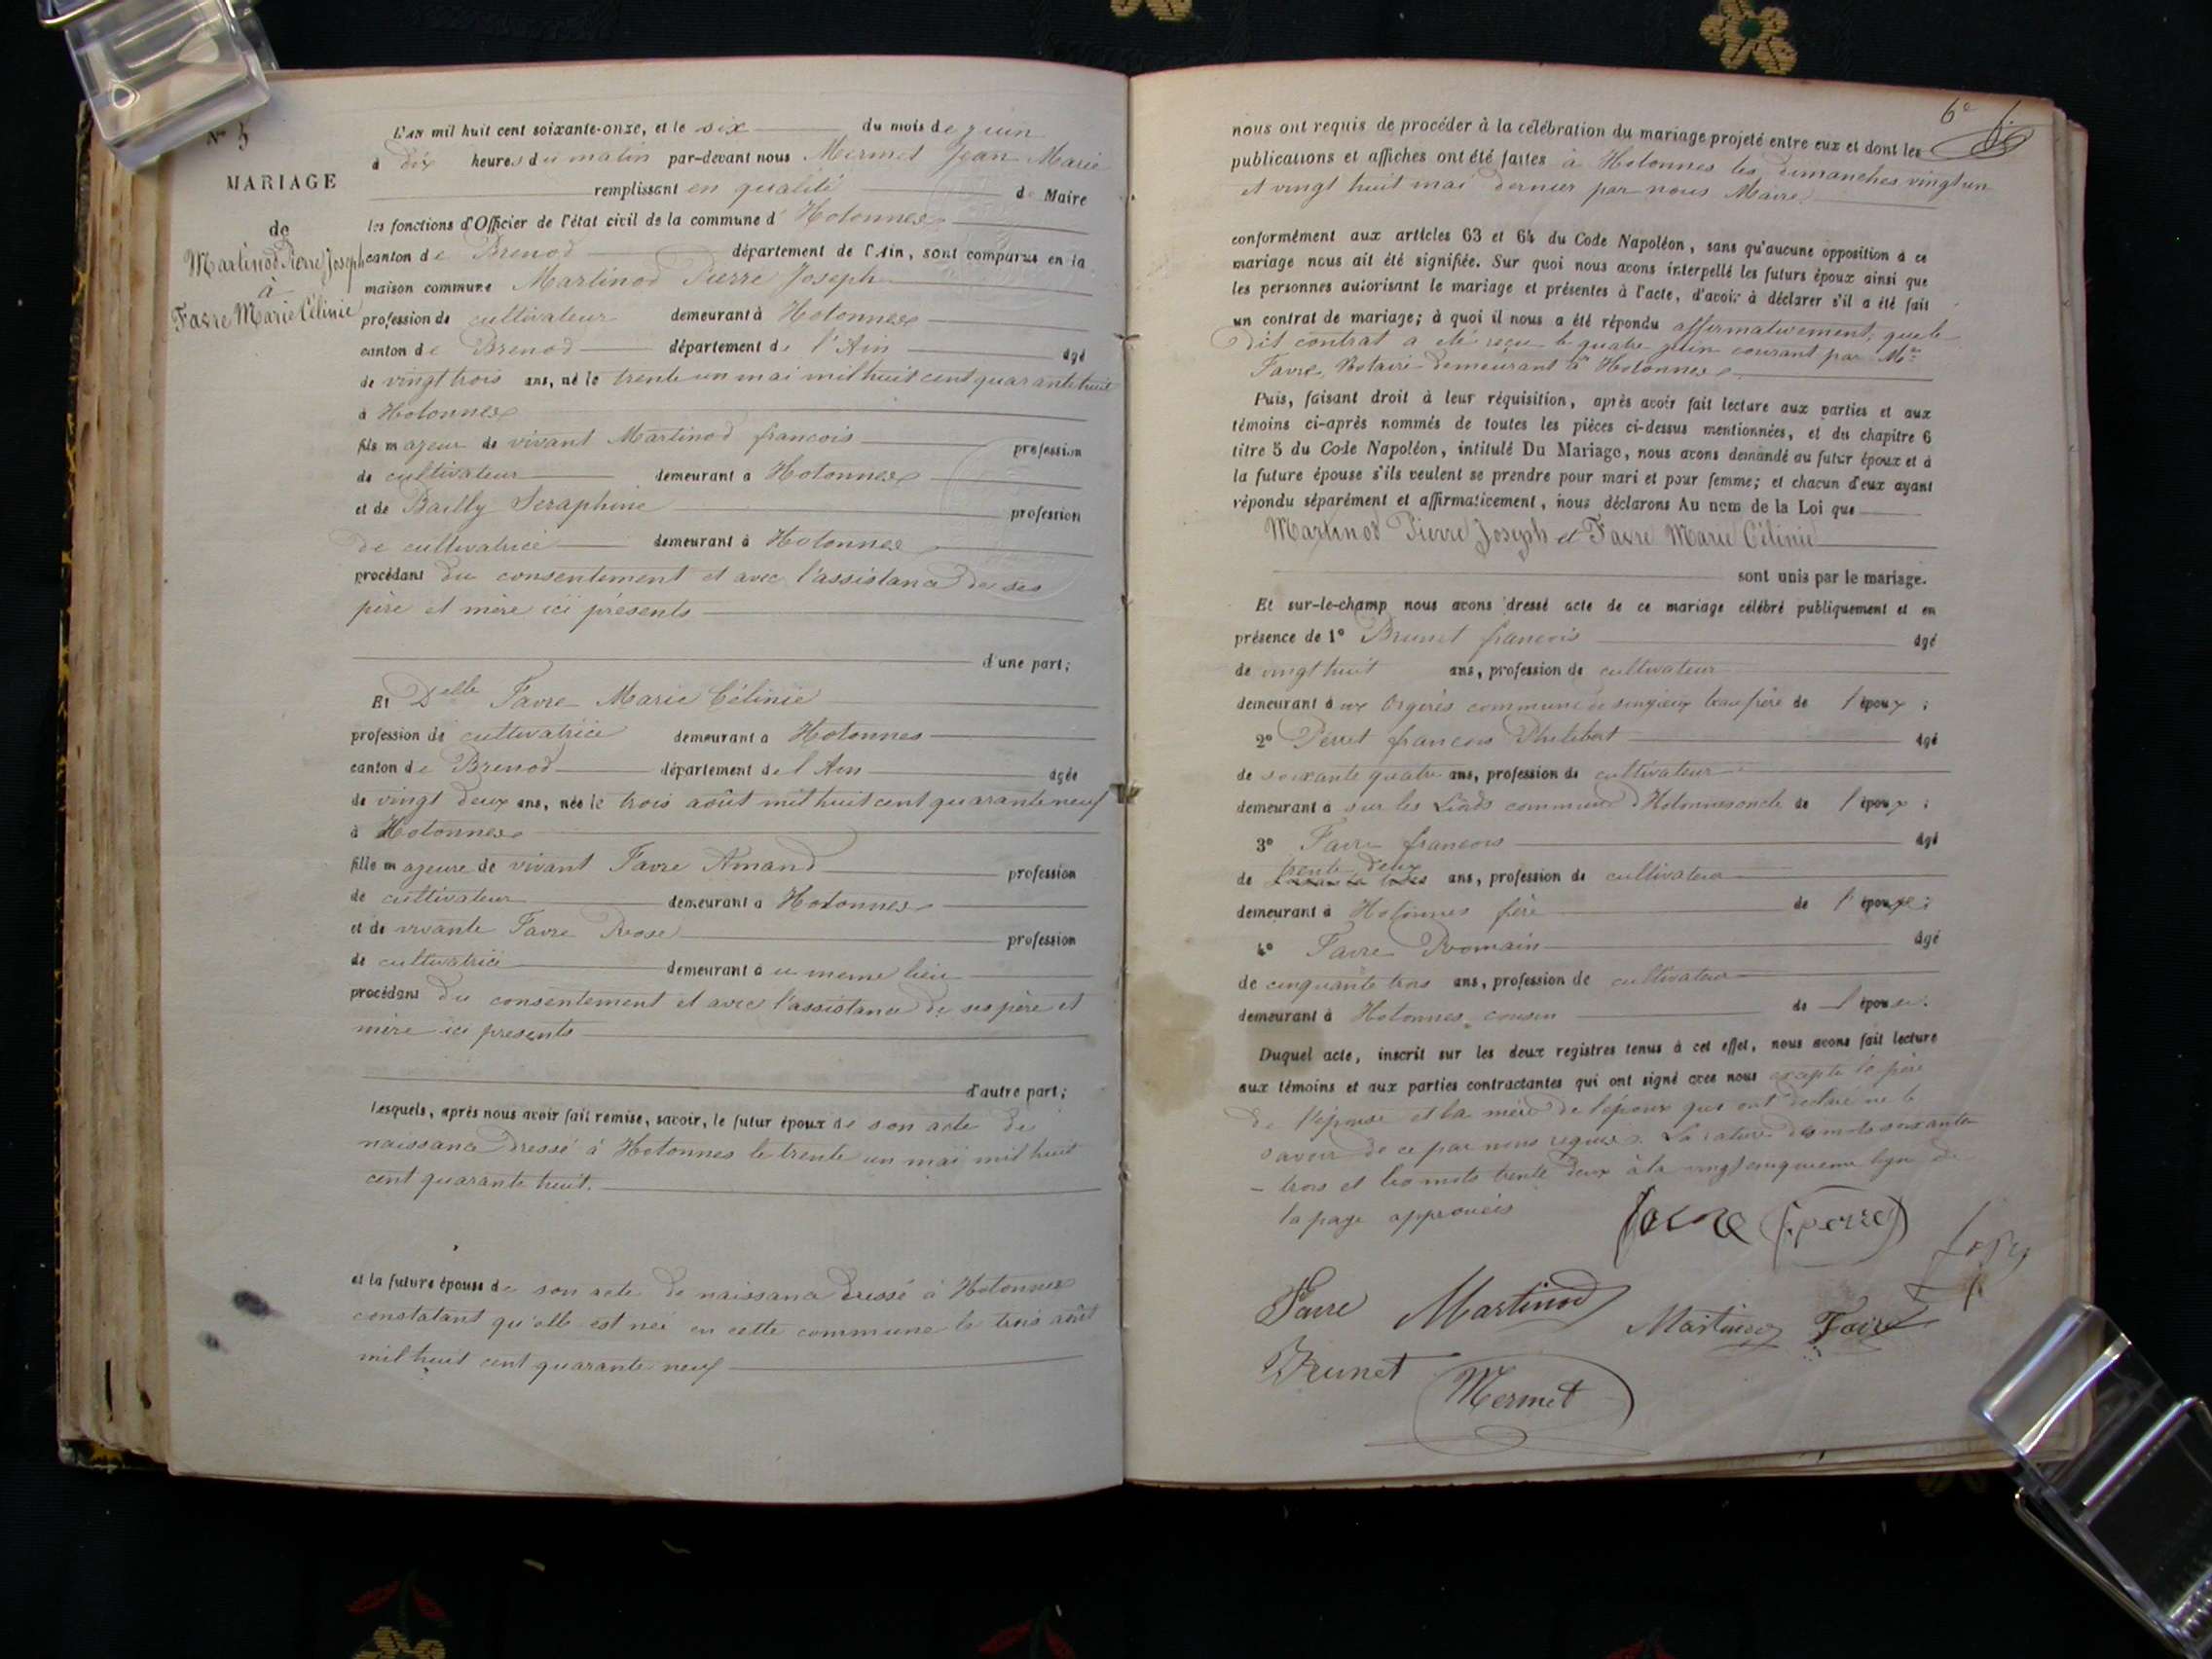 N° 5
MARIAGE
de
Martinod Pierre Joseph
à
Favre Marie Célinie
L'an mil huit cent soixante-onze, et le six du mois de juin
à dix heures du matin par-devant nous Mermet Jean Marie
remplissant en qualité de Maire
les fonctions d'Officier de l'état civil de la commune d' Hotonnes
canton de Brenod département de l'Ain, sont comparus en la
maison commune Martinod Pierre Joseph
profession de cultivateur demeurant à Hotonnes
canton de Brenod département de l'Ain âgé
de vingt trois ans, né le trente un mai mil huit cent quarante huit
à Hotonnes
fils majeur de vivant Martinod francois profession
de cultivateur demeurant à Hotonnes
et de Bailly Seraphine profession
de cultivatrice demeurant à Hotonnes
procédant du consentement et avec l'assistance de ses
père et mère ici présents
d'une part;
Et Delle Favre Marie Célinie
profession de cultivatrice demeurant à Hotonnes
canton de Brenod département de l'Ain âgée
de vingt deux ans, née le trois août mil huit cent quarante neuf
à Hotonnes
fille majeure de vivant Favre Amand profession
de cultivateur demeurant à Hotonnes
et de vivante Favre Rose profession
de cultivatrice demeurant au meme lieu
procédant du consentement et avec l'assistance de ses père et
mère ici presents
d'autre part;
Lesquels, après nous avoir fait remise, savoir, le futur époux de son acte de
naissance dressé à Hotonnes le trente un mai mil huit
cent quarante huit.
et la future épouse de son acte de naissance dressé à Hotonnes
constatant qu'elle est née en cette commune le trois août
mil huit cent quarante neuf
6e
nous ont requis de procéder à la célébration du mariage projeté entre eux et dont les
publications et affiches ont été faites à Hotonnes les dimanches vingt un
et vingt huit mai dernier par nous Maire
conformément aux articles 63 et 64 du Code Napoléon, sans qu'aucune opposition à ce
mariage nous ait été signifiée. Sur quoi nous avons interpellé les futurs époux ainsi que
les personnes autorisant le mariage et présentes à l'acte, d'avoir à déclarer s'il a été fait
un contrat de mariage; à quoi il nous a été répondu affirmativement, que le
dit contrat a eté reçu le quatre juin courant par Me
Favre, Notaire demeurant à Hotonnes
Puis, faisant droit à leur réquisition, après avoir fait lecture aux parties et aux
témoins ci-après nommés de toutes les pièces ci-dessus mentionnées, et du chapitre 6
titre 5 du Code Napoléon, intitulé Du Mariage, nous avons demandé au futur époux et à
la future épouse s'ils veulent se prendre pour mari et pour femme; et chacun d'eux ayant
répondu séparément et affirmativement, nous déclarons Au nom de la Loi que
Martinod Pierre Joseph et Favre Marie Célinie
sont unis par le mariage.
Et sur-le-champ nous avons dressé acte de ce mariage célébré publiquement et en
présence de 1° Brunet francois âgé
de vingt huit ans, profession de cultivateur
demeurant aux Orgeres commune de songieux beau frère de l'époux;
2° Perret francois Philibert âgé
de soixante quatre ans, profession de cultivateur
demeurant à sur les Liads commune d'Hotonnes oncle de l'époux;
3° Favre francois âgé
trente deux
de soixante trois ans, profession de cultivateur
demeurant à Hotonnes frère de l'épouse;
4° Favre Romain âgé
de cinquante trois ans, profession de cultivateur
demeurant à Hotonnes cousin de l'épouse.
Duquel acte, inscrit sur les deux registres tenus à cet effet, nous avons fait lecture
aux témoins et aux parties contractantes qui ont signé avec nous excepté le père
de l'épouse et la mère de l'époux qui ont declaré ne le
savoir de ce par nous requis. La rature des mots soixante
- trois et les mots trente deux à la vingt cinquieme ligne de
la page approuvés
Favre
Favre Martinod Martinod Favre
Brunet Mermet